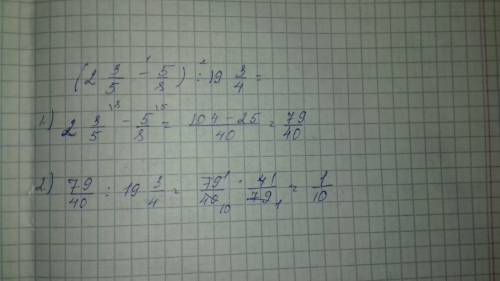 (2 3/5 - 5/8) ÷ 19 3/4 =
1) 2 3/5 - 5/8 = 104-25/40 = 79/40
2) 79/40 : 19 3/4 = 79/40 · 4/79 = 1/10